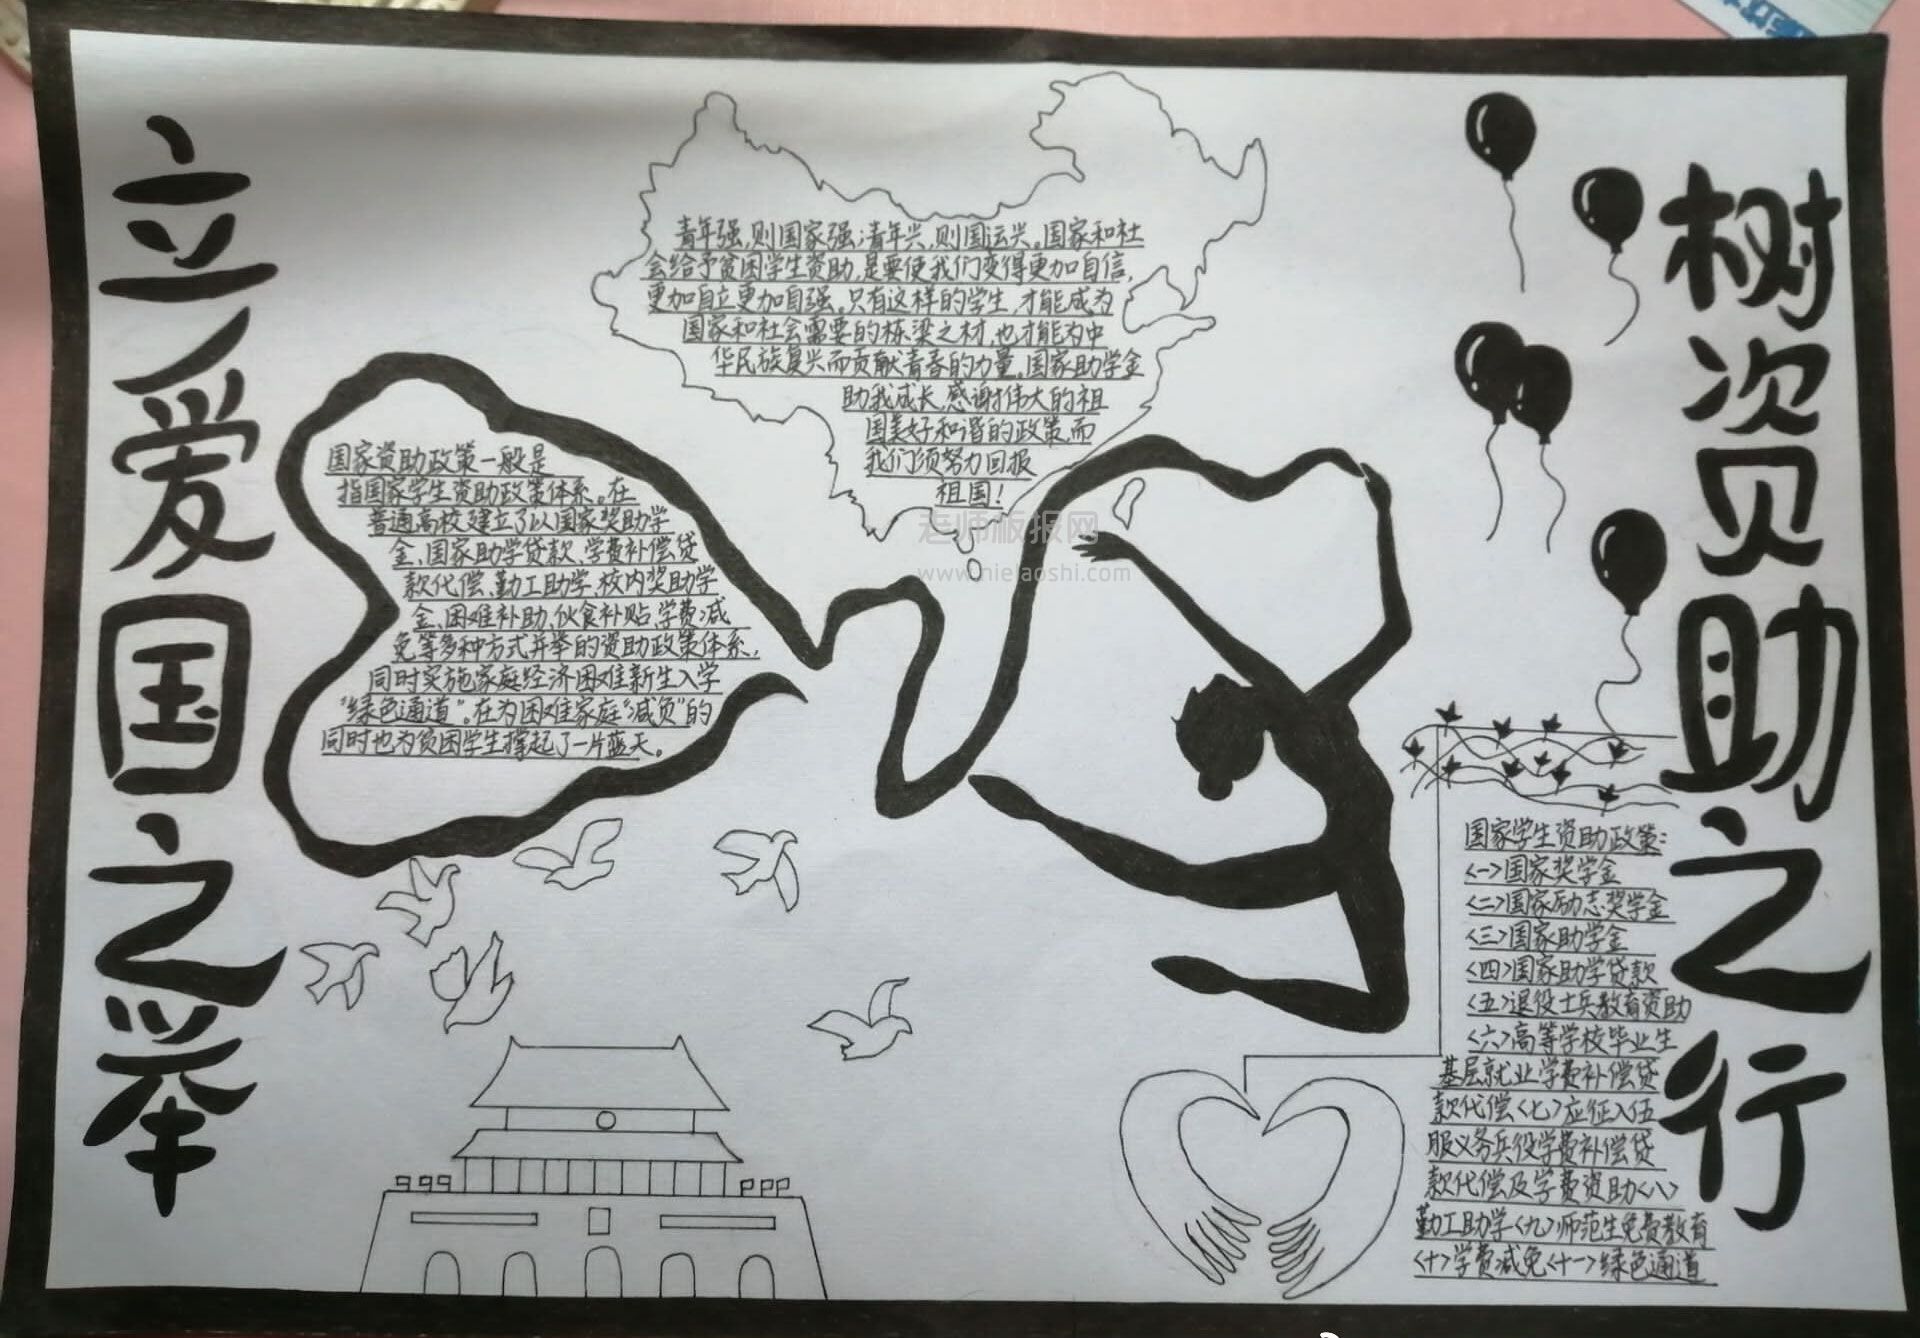 树资助之行
立爱国之举
青年强,则国家强;青年兴,则国运兴。国家和社
会给予贫困学生资助,是要使我们变得更加自信,
更加自立更加自强。只有这样的学生,才能成为
国家和社会需要的栋梁之材,也才能为中
华民族复兴而贡献青春的力量。国家助学金
助我成长,感谢伟大的祖
国美好和谐的政策,而
我们须努力回报
祖国!
国家资助政策一般是
指国家学生资助政策体系。在
普通高校建立了以国家奖助学
金、国家助学贷款、学费补偿贷
款代偿、勤工助学、校内奖助学
金、困难补助、伙食补贴、学费减
免等多种方式并举的资助政策体系,
同时实施家庭经济困难新生入学
“绿色通道”。在为困难家庭“减负”的
同时也为贫困学生撑起了一片蓝天。
国家学生资助政策:
<一>国家奖学金
<二>国家励志奖学金
<三>国家助学金
<四>国家助学贷款
<五>退役士兵教育资助
<六>高等学校毕业生
基层就业学费补偿贷
款代偿<七>应征入伍
服义务兵役学费补偿贷
款代偿及学费资助<八>
勤工助学<九>师范生免费教育
<十>学费减免<十一>绿色通道
老师板报网
www.nielaoshi.com